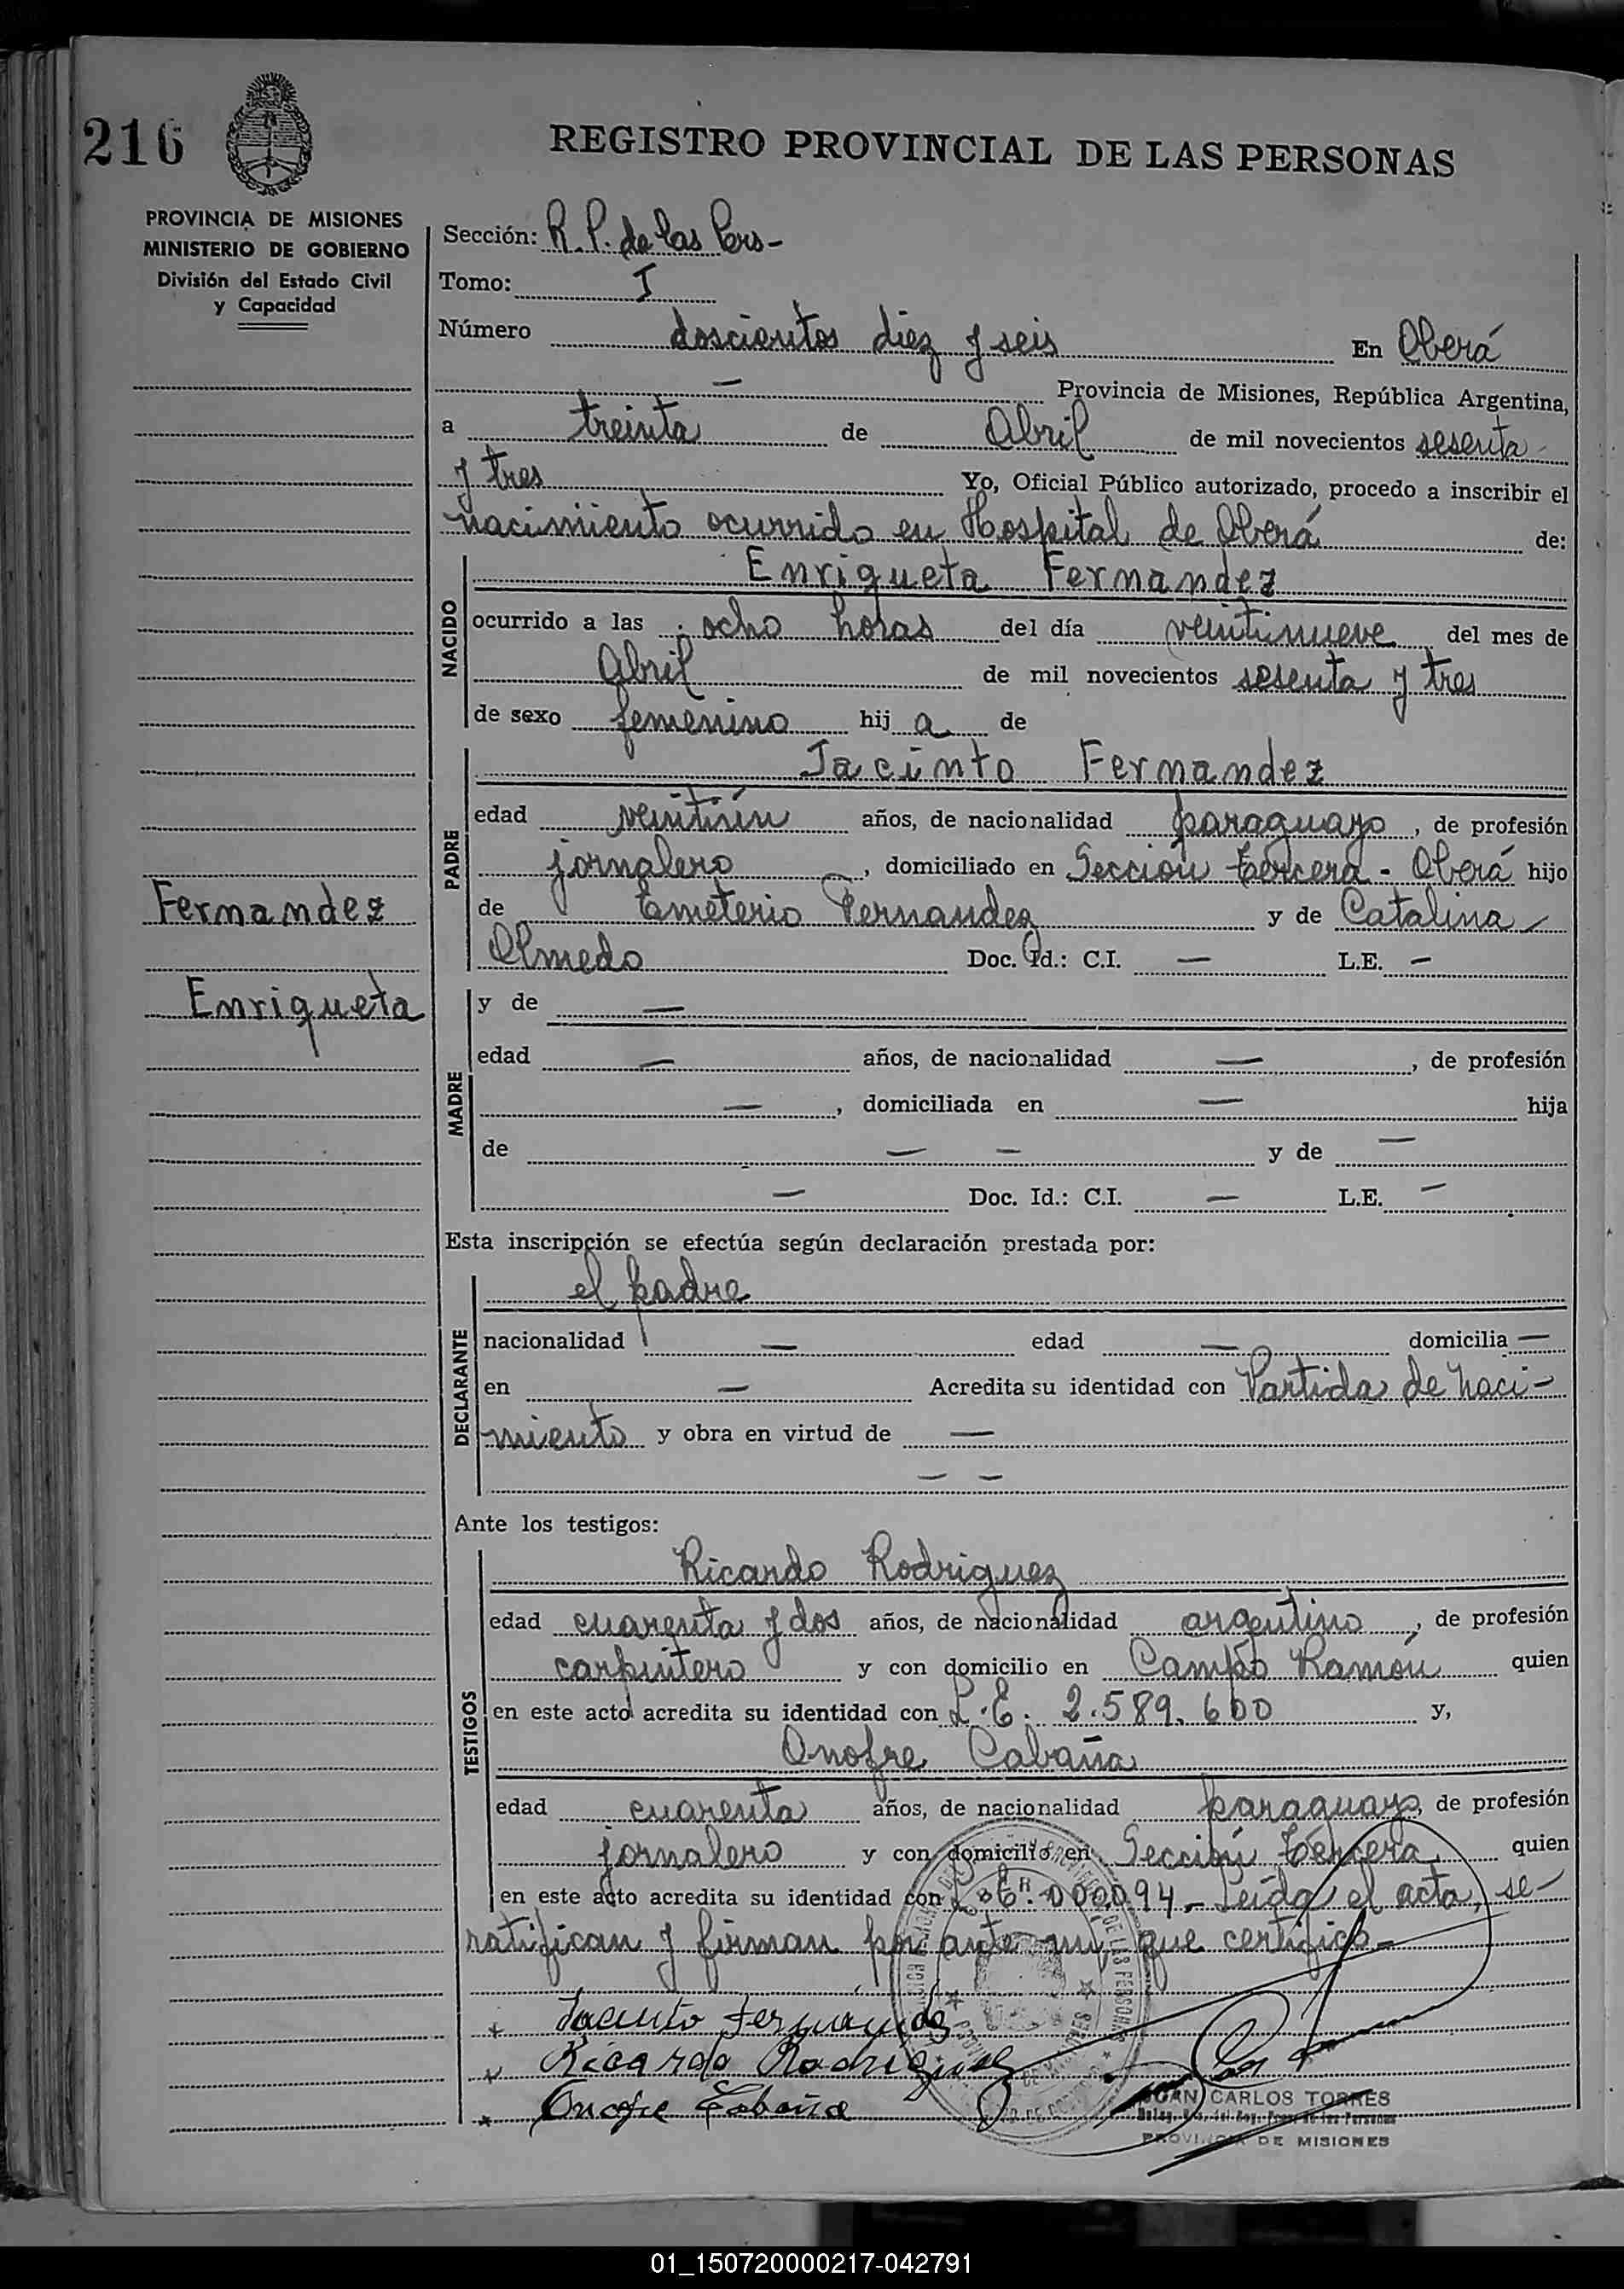 216
REGISTRO PROVINCIAL DE LAS PERSONAS
PROVINCIA DE MISIONES
MINISTERIO DE GOBIERNO
División del Estado Civil
y Capacidad
Sección: R. P. de las Pers-
Tomo: I
Número doscientos diez y seis En Oberá
— Provincia de Misiones, República Argentina,
a treinta de Abril de mil novecientos sesenta
y tres Yo, Oficial Público autorizado, procedo a inscribir el
nacimiento ocurrido en Hospital de Oberá de:
NACIDO
Enriqueta Fernandez
ocurrido a las ocho horas del día veintinueve del mes de
Abril de mil novecientos sesenta y tres
de sexo femenino hij a de
PADRE
Jacinto Fernandez
edad veintiún años, de nacionalidad paraguayo, de profesión
jornalero, domiciliado en Sección tercera - Oberá hijo
Fernandez
de Emeterio Fernandez y de Catalina
Olmedo Doc. Id.: C.I. — L.E. —
Enriqueta
MADRE
y de —
edad — años, de nacionalidad —, de profesión
—, domiciliada en — hija
de — — y de —
— Doc. Id.: C.I. — L.E. —
Esta inscripción se efectúa según declaración prestada por:
DECLARANTE
el padre
nacionalidad — edad — domicilia —
en — Acredita su identidad con Partida de naci-
miento y obra en virtud de —
— —
Ante los testigos:
TESTIGOS
Ricardo Rodriguez
edad cuarenta y dos años, de nacionalidad argentino, de profesión
carpintero y con domicilio en Campo Ramón quien
en este acto acredita su identidad con L.E. 2.589.600 y,
Onofre Cabaña
edad cuarenta años, de nacionalidad paraguayo, de profesión
jornalero y con domicilio en Sección tercera quien
en este acto acredita su identidad con L.E. 000.094.- Leída el acta, se
ratifican y firman por ante mi, que certifico.-
Jacinto Fernández
Ricardo Rodriguez
Onofre Cabaña
JUAN CARLOS TORRES
PROVINCIA DE MISIONES
01_150720000217-042791